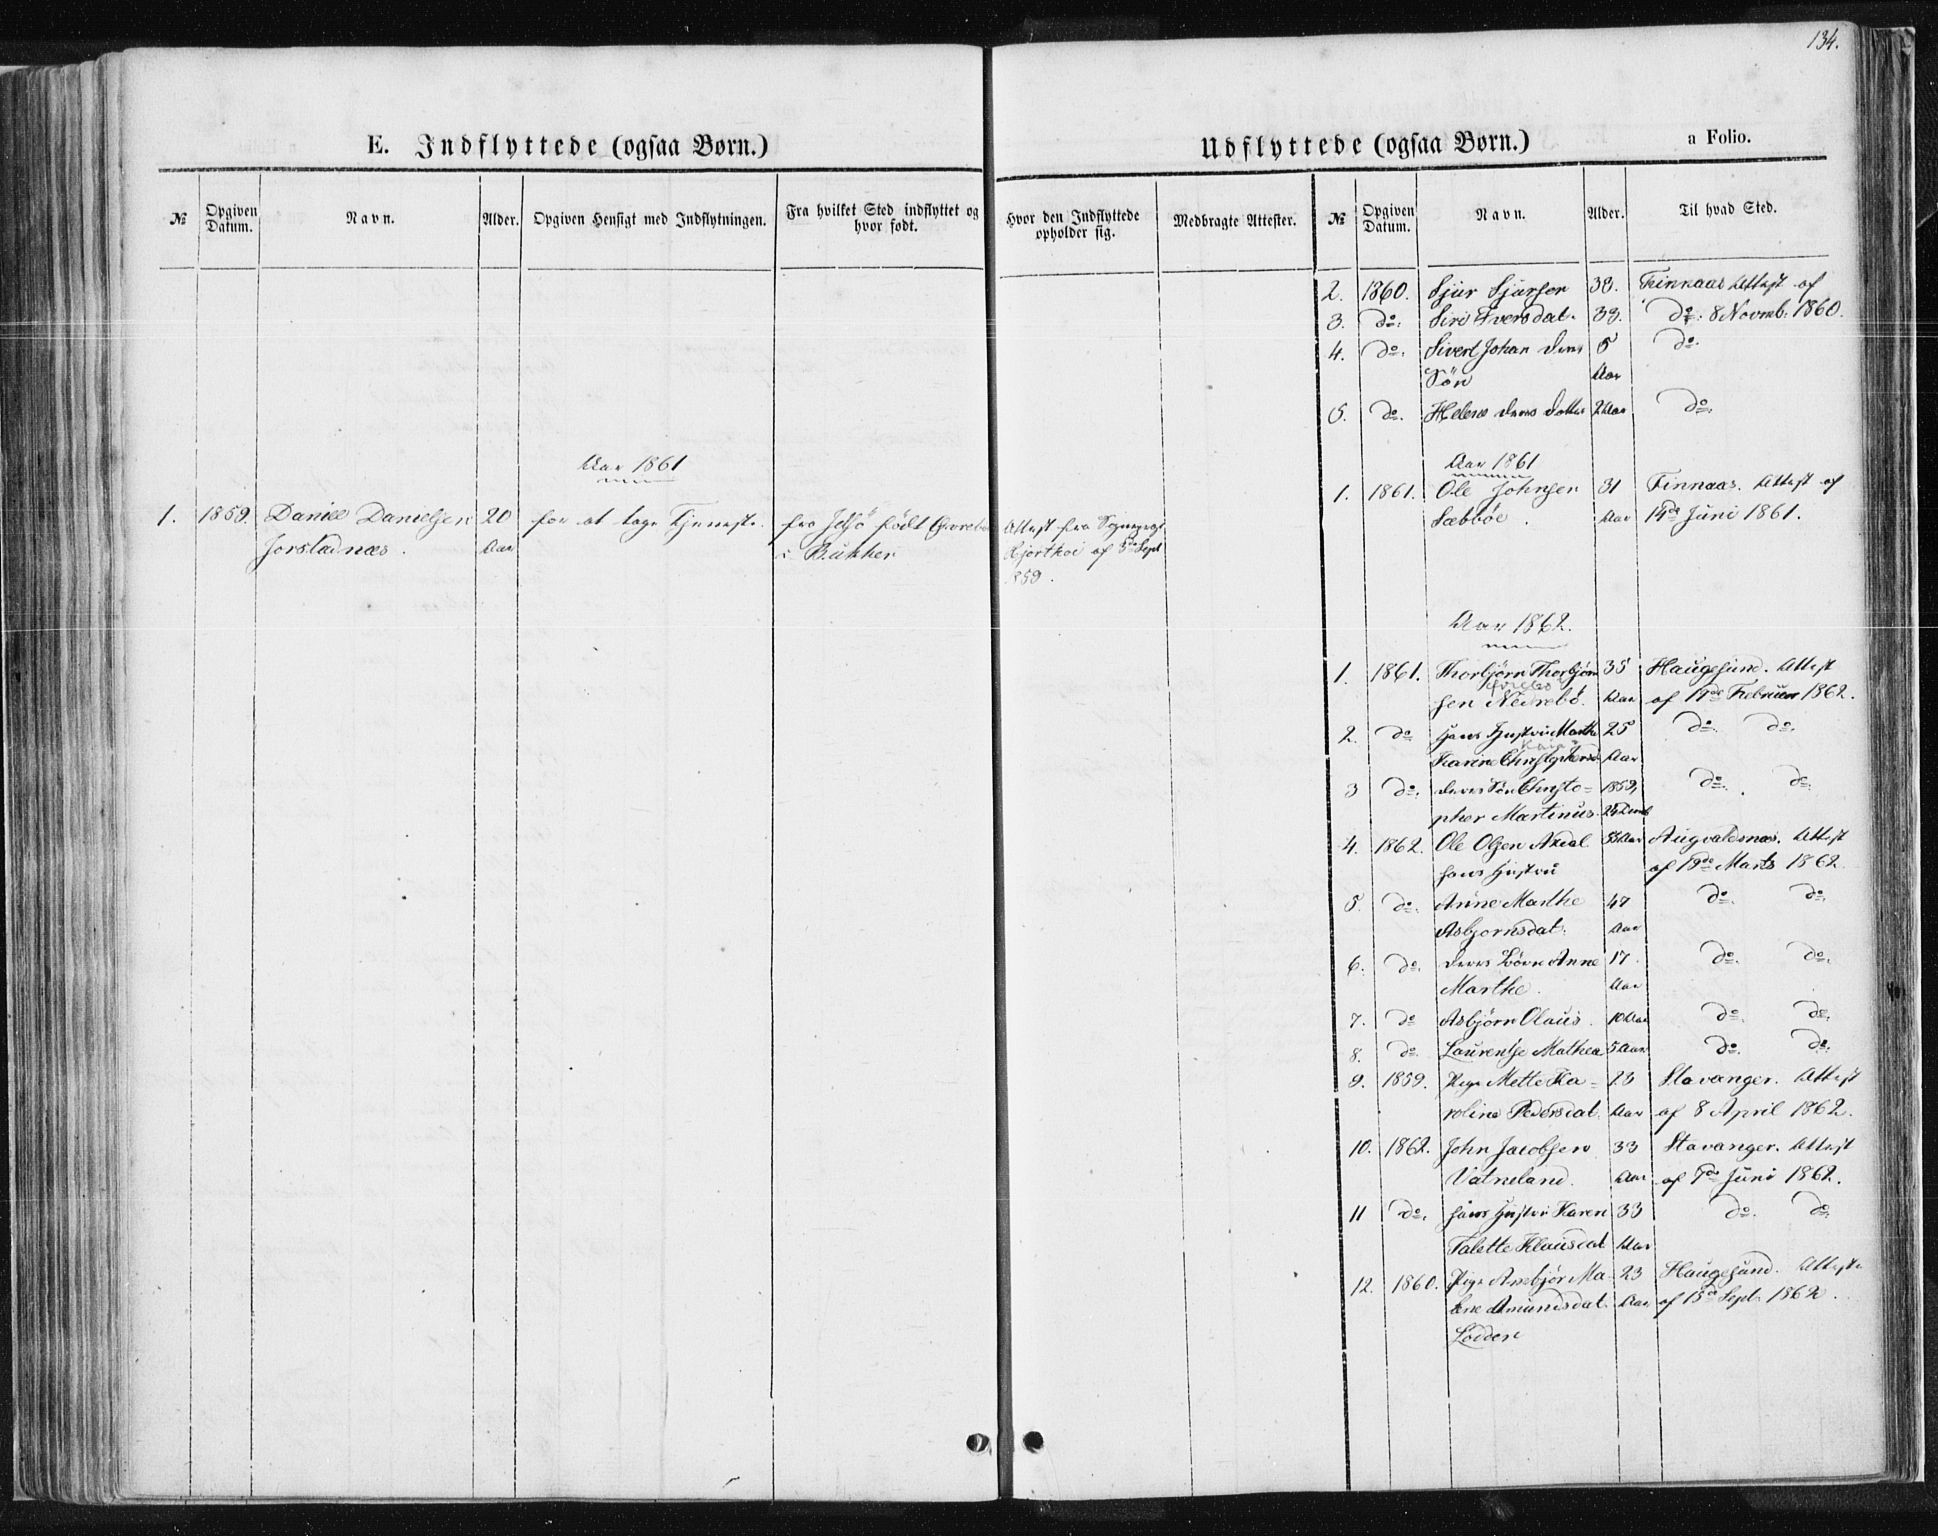 134.
E. Indflyttede (ogsaa Børn.)
№
Opgiven Datum.
Navn.
Alder.
Opgiven Hensigt med Indflytningen.
Fra hvilket Sted indflyttet og hvor født.
Aar 1861
1. 1859. Daniel Danielsen 20 for at tage Tjeneste. fra Jelsø født
Jorstadnæs. Aar i Bukken
Udflyttede (ogsaa Børn.)
a Folio.
Hvor den Indflyttede opholder sig.
Medbragte Attester.
№
Opgiven Datum.
Navn.
Alder.
Til hvad Sted.
Attest fra Sognepræst
Kjorthoi af 5de Sept
1859.
2. 1860. Sjur Sjursen 38. Finnaas Attest af
3. do. Siri Iversdat. 33. do. 8 Novemb. 1860.
4. do. Sivert Johan deres 5 do.
Søn Aar
5. do. Helene deres Datter 2 Aar do.
Aar 1861
1. 1861. Ole Johnsen 31 Finnaas. Attest af
Sæbbøe. Aar 14de Juni 1861.
Aar 1862.
1. 1861. Thorbjørn Thorbjørn 35 Haugesund. Attest
sen Nedrebø. Aar af 11de Februar 1862.
2. do hans Hustru Marthe 25 do. do.
Karine Christophersd Aar
3 do. deres Søn Christo= 1859, do. do.
pher Martinus.
4. 1862. Ole Olsen Axdal Aar Augvaldsnæs. Attest
hans Hustru af 19de Marts 1862
5. do. Anne Marthe 47 do. do.
Asbjornsdat. Aar
6. do. deres Børn Anne 17 do. do.
Marthe. Aar
7. do Asbjørn Olaus. 10 Aar do. do.
8. do. Laurentse Mathea 5 Aar do. do.
9. 1859. Pige Mette Ka= 23 Stavanger. Attest
roline Pedersdat. Aar af 8 April 1862.
10. 1862. John Jacobsen 33 Stavanger. Attest
Vatneland. Aar af 7de Juni 1862.
11 do. hans Hustru Karen 33 do. do.
Talette Klausdat Aar
12. 1860. Pige Anbjør Ma= 23 Haugesund. Attest
lene Amundsdat. Aar af 15de Sept. 1862.
Lodden